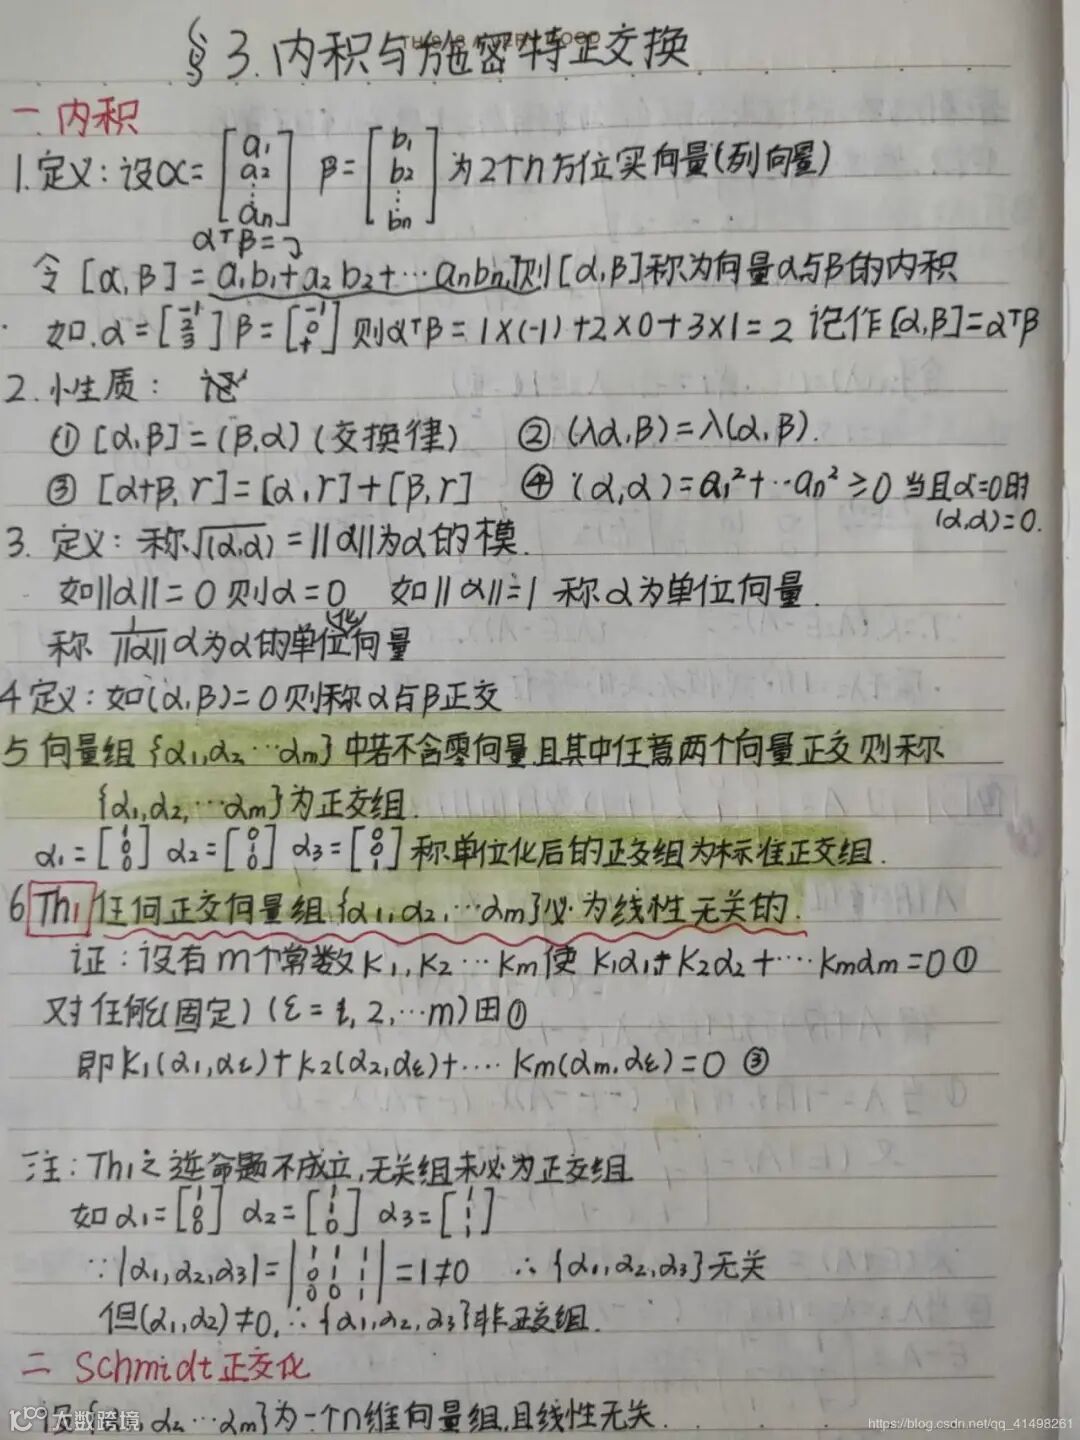 §3.内积与施密特正交换
一.内积
1.定义:设α=[a1 a2 ⋮ an] β=[b1 b2 ⋮ bn]为2个n方位实向量(列向量)
αᵀβ=
令[α,β]=a1b1+a2b2+…anbn,则[α,β]称为向量α与β的内积
如.α=[ 2 3] β=[-1 0 ]则αᵀβ=1×(-1)+2×0+3×1=2 记作[α,β]=αᵀβ
2.小性质: 记
①[α,β]=(β,α)(交换律) ②(λα,β)=λ(α,β).
③[α+β,r]=[α,r]+[β,r] ④(α,α)=a1²+…an²≥0 当且α=0时
(α,α)=0.
3.定义:称√(α,α)=||α||为α的模.
如||α||=0则α=0 如||α||=1称α为单位向量.
称1/||α||α为α的单位化向量
4定义:如(α,β)=0则称α与β正交
5向量组{α1,α2…αm}中若不含零向量且其中任意两个向量正交则称
{α1,α2,…αm}为正交组.
α1=[1 0 0] α2=[0 1 0] α3=[0 0 1]称单位化后的正交组为标准正交组.
6Th1任何正交向量组{α1,α2,…αm}必为线性无关的.
证:设有m个常数k1,k2…km使k1α1+k2α2+…kmαm=0①
对任何ε(固定)(ε=1,2,…m)由①
即k1(α1,αε)+k2(α2,αε)+…km(αm,αε)=0③
注:Th1之逆命题不成立,无关组未必为正交组
如α1=[1 0 0] α2=[1 1 0] α3=[1 1 1]
∵|α1,α2,α3|=|1 1 1 0 1 1 0 0 1|=1≠0 ∴{α1,α2,α3}无关
但(α1,α2)≠0,∴{α1,α2,α3}非正交组.
二 Schmidt正交化
设{α1,α2…αm}为一个n维向量组,且线性无关.
大数跨境
https://blog.csdn.net/qq_41498261